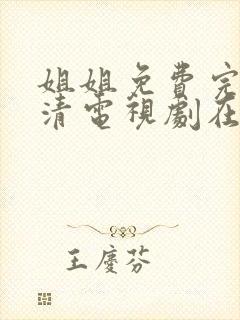 姐姐免費完
清電視劇在
王慶芬